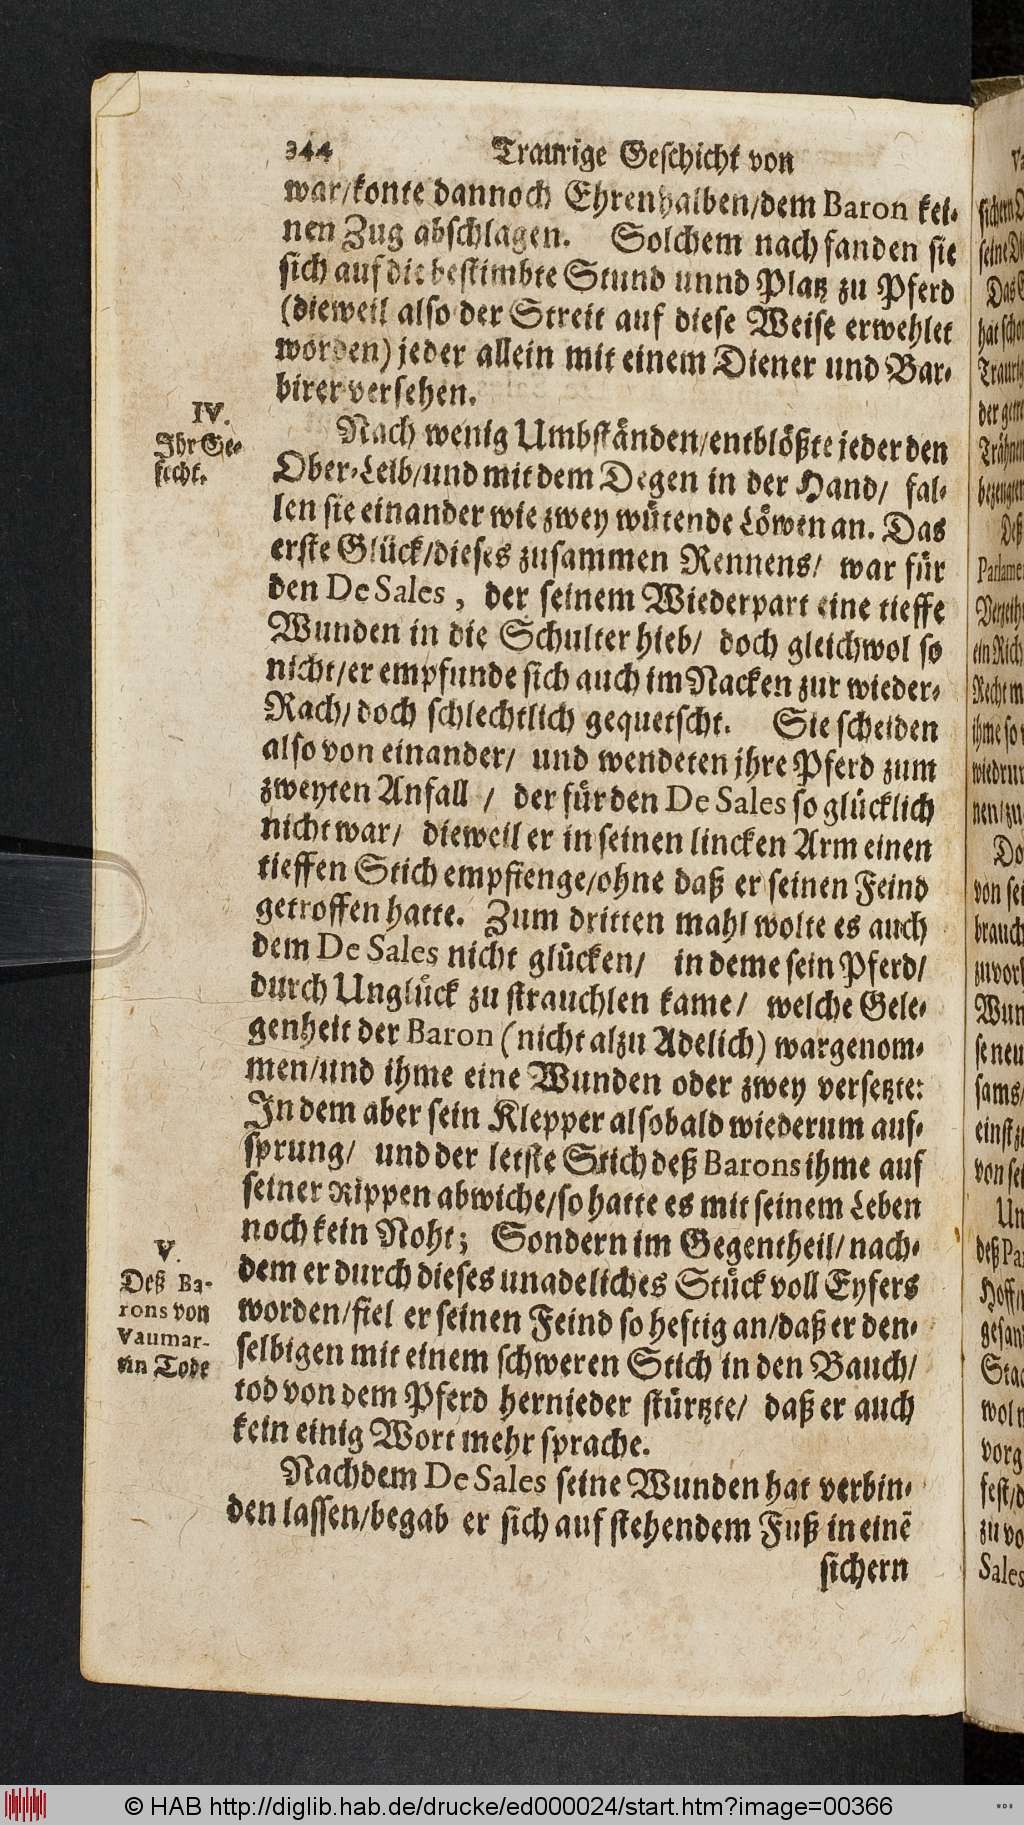 344 Traurige Geschicht von
war/konte dannoch Ehrenhalben/dem Baron kei-
nen Zug abschlagen. Solchem nach fanden sie
sich auf die bestimbte Stund unnd Platz zu Pferd
(dieweil also der Streit auf diese Weise erwehlet
worden) jeder allein mit einem Diener und Bar-
birer versehen.
IV.
Ihr Ge-
fecht.
Nach wenig Umbständen/entblößte jeder den
Ober-Leib/und mit dem Degen in der Hand/ fal-
len sie einander wie zwey wütende Löwen an. Das
erste Glück/dieses zusammen Rennens/ war für
den De Sales, der seinem Wiederpart eine tieffe
Wunden in die Schulter hieb/ doch gleichwol so
nicht/er empfunde sich auch im Nacken zur wieder-
Rach/doch schlechtlich gequetscht. Sie scheiden
also von einander/ und wendeten jhre Pferd zum
zweyten Anfall / der für den De Sales so glücklich
nicht war/ dieweil er in seinen lincken Arm einen
tieffen Stich empfienge/ohne daß er seinen Feind
getroffen hatte. Zum dritten mahl wolte es auch
dem De Sales nicht glücken/ in deme sein Pferd/
durch Unglück zu strauchlen kame/ welche Gele-
genheit der Baron (nicht alzu Adelich) wargenom-
men/und ihme eine Wunden oder zwey versetzte:
In dem aber sein Klepper alsobald wiederum auf-
sprung/ und der letste Stich deß Barons ihme auf
seiner Rippen abwiche/so hatte es mit seinem Leben
noch kein Noht; Sondern im Gegentheil/nach-
dem er durch dieses unadeliches Stück voll Eyfers
worden/fiel er seinen Feind so heftig an/daß er den-
selbigen mit einem schweren Stich in den Bauch/
tod von dem Pferd hernieder stürtzte/ daß er auch
kein einig Wort mehr sprache.
V.
Deß Ba-
rons von
Vaumar-
tin Tode
Nachdem De Sales seine Wunden hat verbin-
den lassen/begab er sich auf stehendem Fuß in einē
sichern
© HAB http://diglib.hab.de/drucke/ed000024/start.htm?image=00366